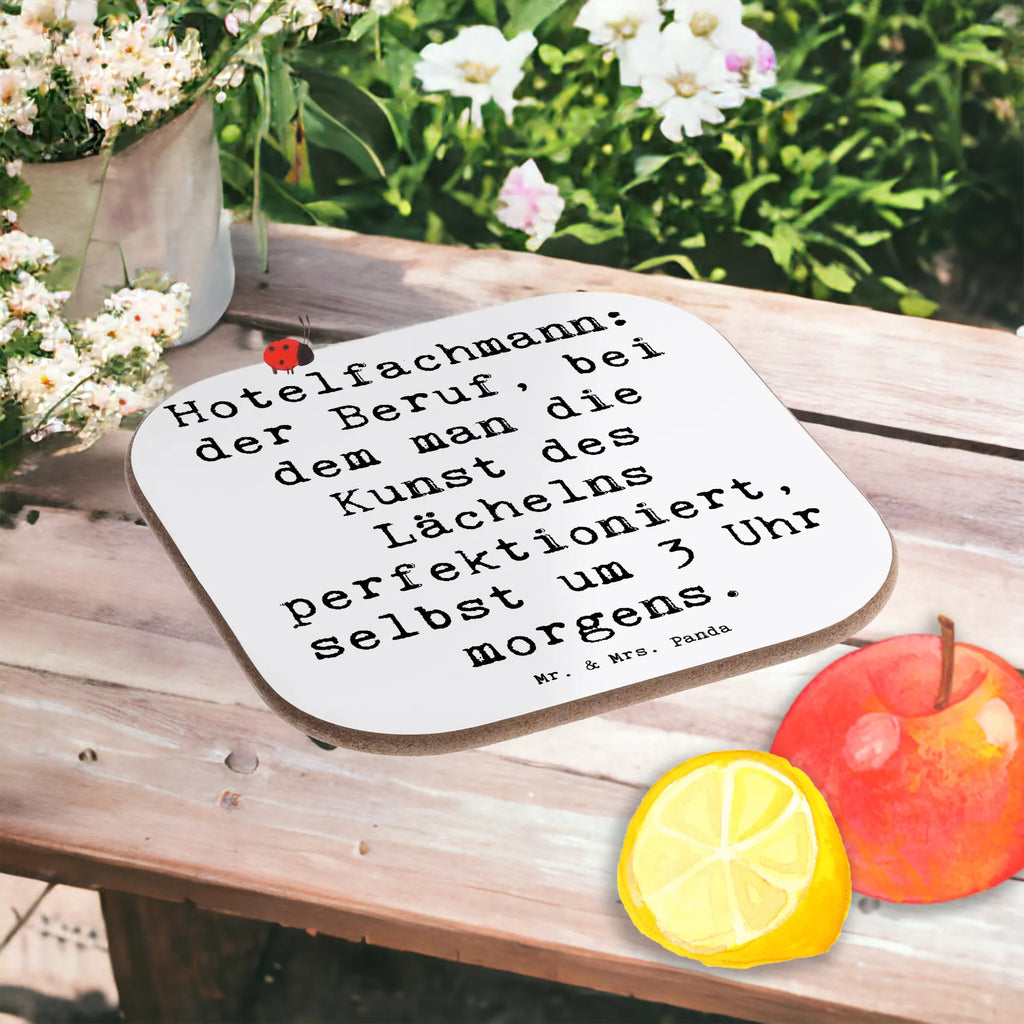 Hotelfachmann:
der Beruf, bei
dem man die
Kunst des
Lächelns
perfektioniert,
selbst um 3 Uhr
morgens.
Mr. & Mrs. Panda